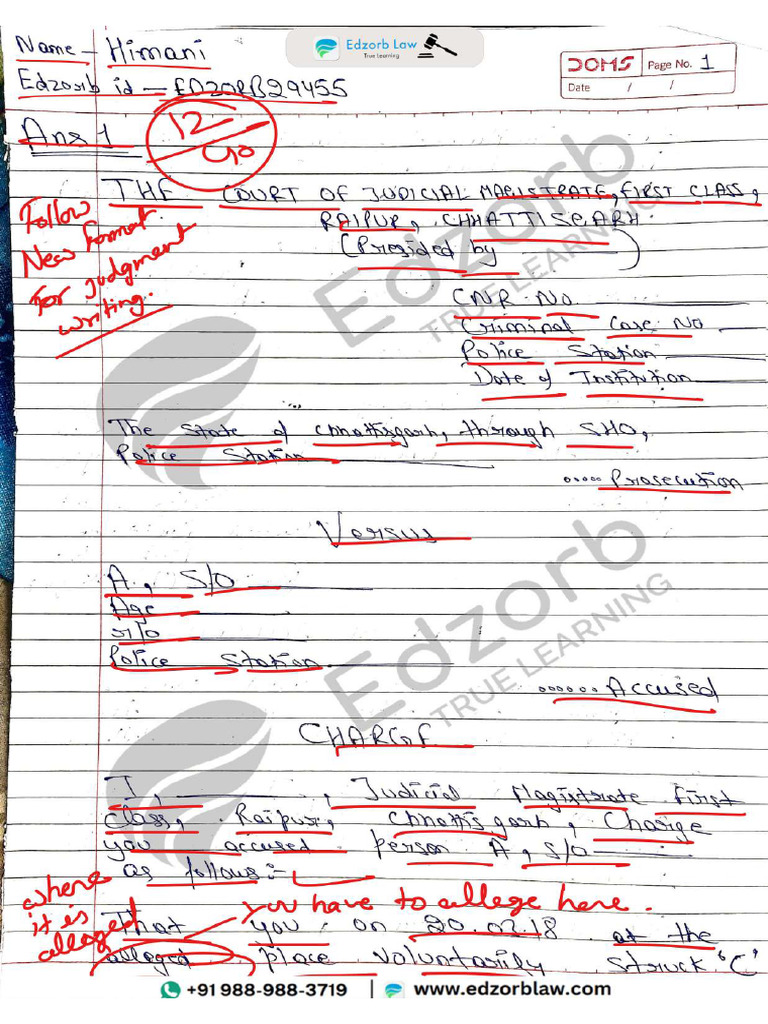 Name - Himani
Edzorb Law
True Learning
DOMS Page No. 1
Date / /
Edzorb id - EDZORB29455
Ans 1
12/40
THE COURT OF JUDICIAL MAGISTRATE, FIRST CLASS,
RAIPUR, CHHATTISGARH
(Presided by )
Follow
New format
for judgment
writing.
CNR No.
Criminal Case No
Police Station
Date of Institution
The State of Chhattisgarh, through SHO,
Police Station
...... Prosecution
Versus
A, S/O
Age
r/o
Police Station
...... Accused
CHARGE
I, , Judicial Magistrate First
Class, Raipur, Chhattisgarh, Charge
you accused person A, S/O
as follows:-
where
it is
alleged
You have to allege here.
That you on 20.02.18 at the
alleged place voluntarily struck 'C'
Edzorb
TRUE LEARNING
Edzorb
TRUE LEARNING
+91 988-988-3719 | www.edzorblaw.com